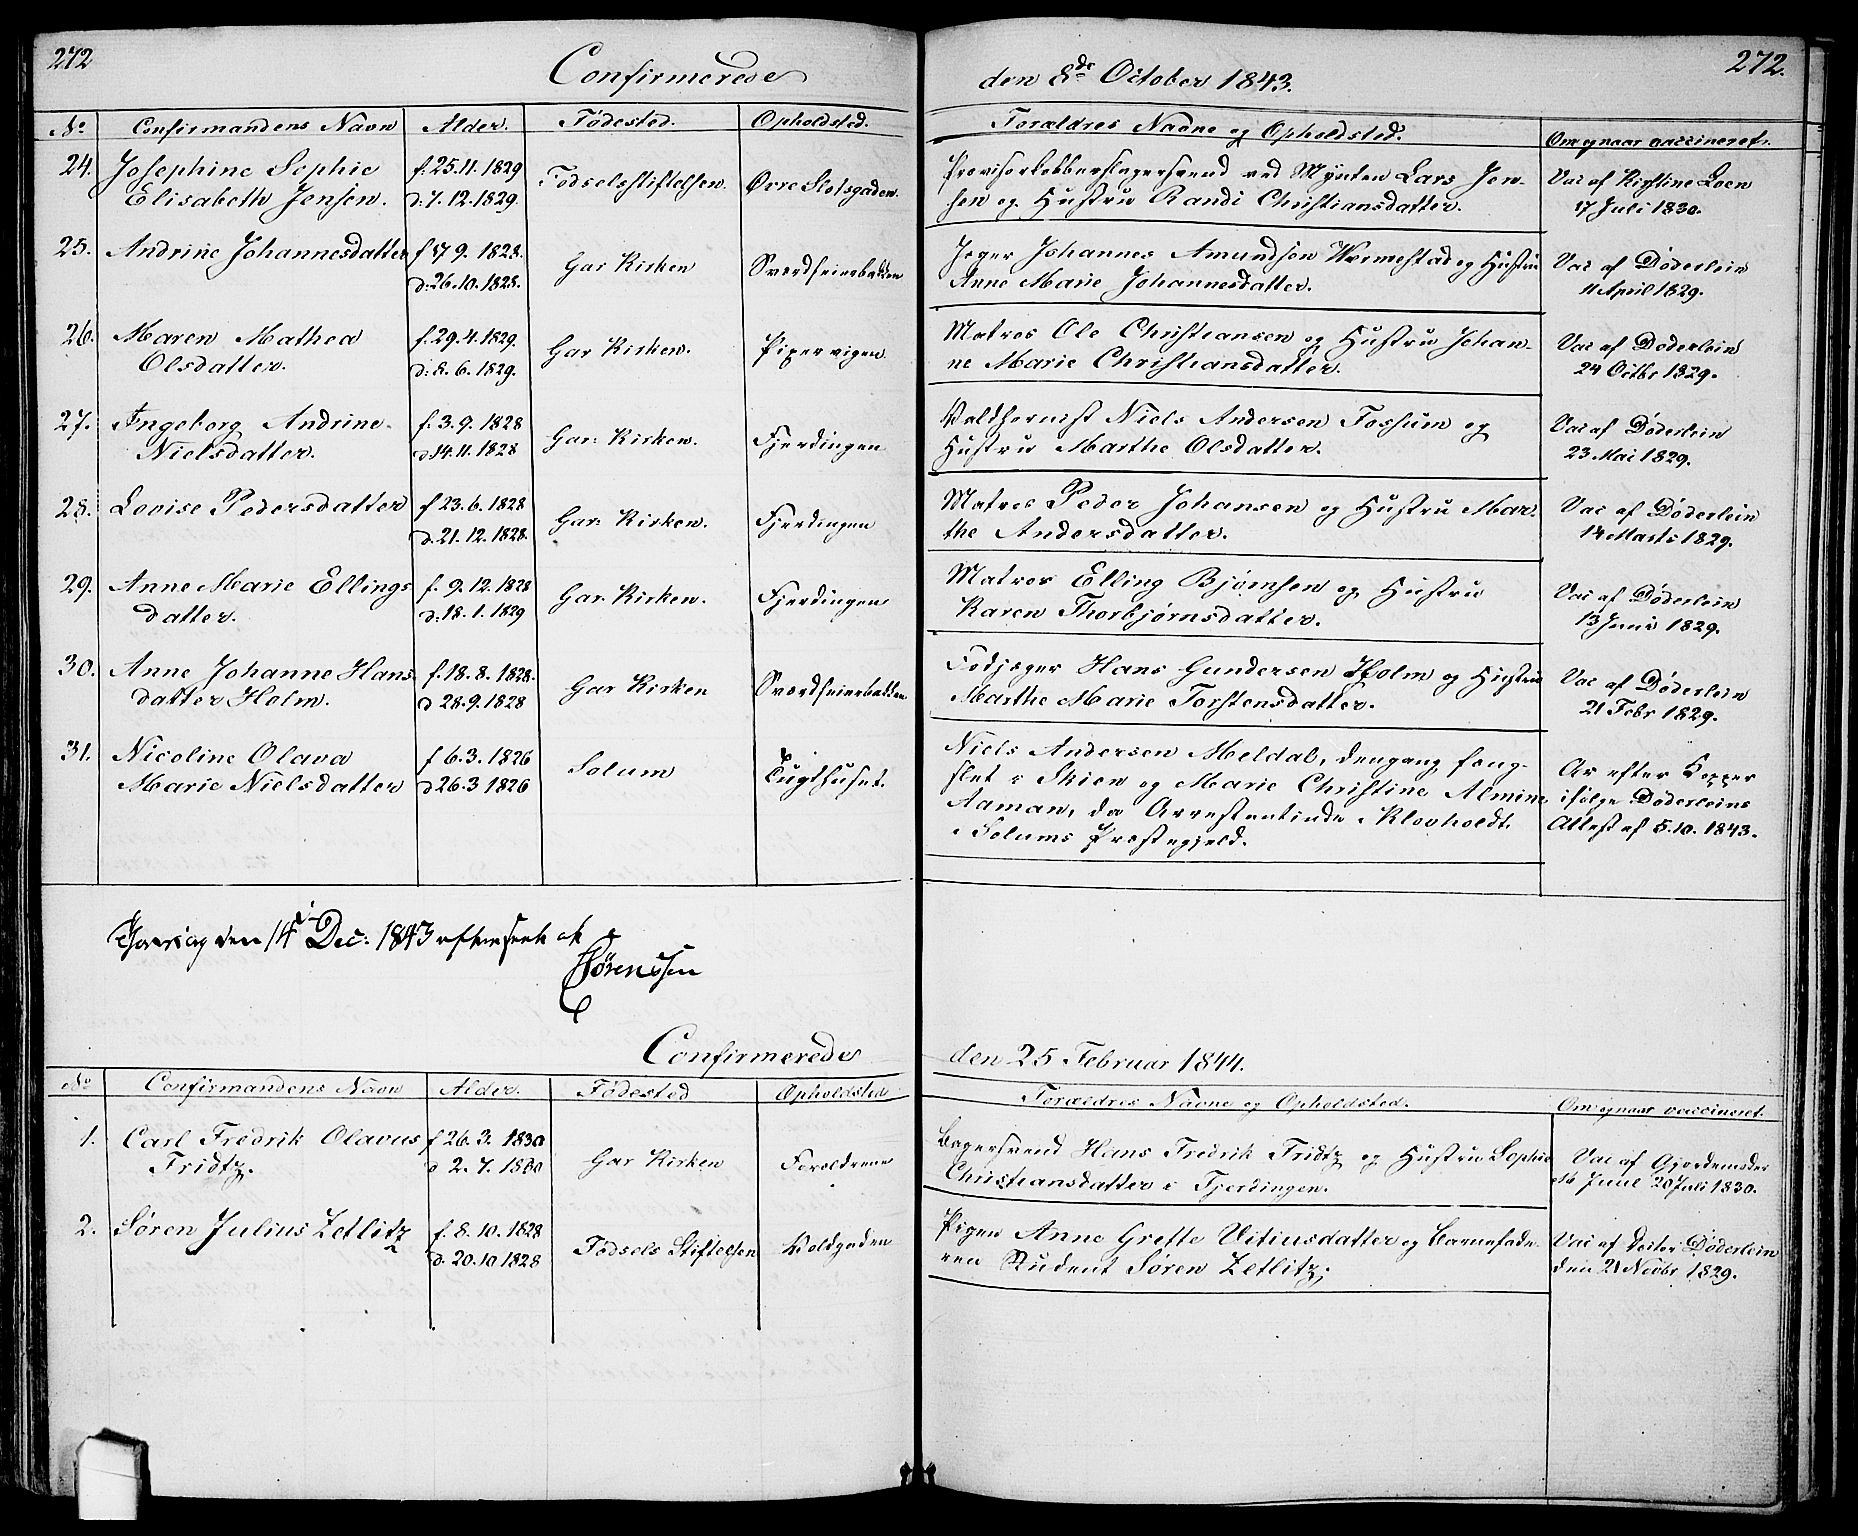 272
Confirmerede
No Confirmandens Navn Alder. Födested. Opholdsted.
24. Josephine Sophie f. 25.11.1829 Födselsstiftelsen. Övre Slotsgaden.
Elisabeth Jensen. d: 7.12.1829.
25. Andrine Johannesdatter f 17 9. 1828. Gar Kirken Sværdfeierbakken
d: 26.10.1828.
26. Maren Mathea f. 29.4.1829. Gar Kirken. Pipervigen
Olsdatter. d: 8.6.1829.
27. Ingeborg Andrine f. 3.9.1828 Gar: Kirken. Fjerdingen
Nielsdatter. d. 14.11.1828
28. Lovise Pedersdatter f 23.6.1828 Gar: Kirken. Fjerdingen
d. 21.12.1828.
29. Anne Marie Ellings f. 9.12.1828 Gar. Kirken. Fjerdingen
datter. d: 18.1.1829
30. Anne Johanne Hans f. 18.8.1828. Gar Kirken Sværdfeierbakken
datter Holm. d 28.9.1828
31. Nicoline Olava f 6.3.1826 Solum Tugthuset.
Marie Nielsdatter d 26.3 1826
den 14 Dec: 1843 efterseet af
Sörenssen
Confirmerede
No Confirmandens Navn Alder. Födested Opholdsted
1. Carl Fredrik Olavus f 26.3. 1830 Gar Kirken Forældrene
Fridtz. d 2.7.1830
2. Sören Julius Zetlitz f. 8.10.1828 Födsels Stiftelsen Voldgaden
d. 20.10 1828
272.
den 8de October 1843.
Forældres Navne og Opholdsted. Om og naar vaccineret.
Provisorkobberslagersvend ved Mynten Lars Jen- Vac af Kirstine Loen
sen og Hustru Randi Christiansdatter. 17 Juli 1830.
Jæger Johannes Amundsen og Hustru Vac af Döderlein
Anne Marie Johannesdatter. 11 April 1829.
Matros Ole Christiansen og Hustru Johan- Vac af Döderlein
ne Marie Christiansdatter. 24 Octbr 1829.
Valdhornist Niels Andersen Fossum og Vac af Döderlein
Hustru Marthe Olsdatter. 23 Mai 1829.
Matros Peder Johansen og Hustru Mar- Vac af Döderlein
the Andersdatter. 14 Marts 1829.
Matros Elling Bjørnsen og Hustru Vac af Döderlein
Karen Thorbjørnsdatter. 13 Juni 1829.
Fodjæger Hans Gundersen Holm og Hustru Vac af Döderlein
Marthe Marie Torstensdatter. 21 Febr 1829.
Niels Andersen Meldal, dengang fæng- Ar efter Kopper
slet i Skien og Marie Christine Almine ifölge Döderleins
Aaman, da Arrestantinde i Klovholdt. Attest af 5.10.1843.
i Solums Præstegjeld.
den 25 Februar 1844.
Forældres Navne og Opholdsted. Om og naar vaccineret.
Bagersvend Hans Fredrik Fridtz og Hustru Sophie Vac af Gjordemoder
Christiansdatter i Fjerdingen. Juul 20 Juli 1830.
Pigen Anne Grette Vitiusdatter og Barnefade- Vac af Doctor Döderlein
ren Student Sören Zetlitz; den 21 Novbr 1829.